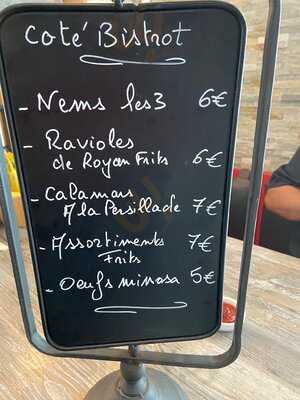 Coté Bistrot
- Nems les 3 6€
- Ravioles
de Royan Frits 6€
- Calamars
A la Persillade 7€
- Assortiments 7€
Frits
- Oeufs mimosa 5€